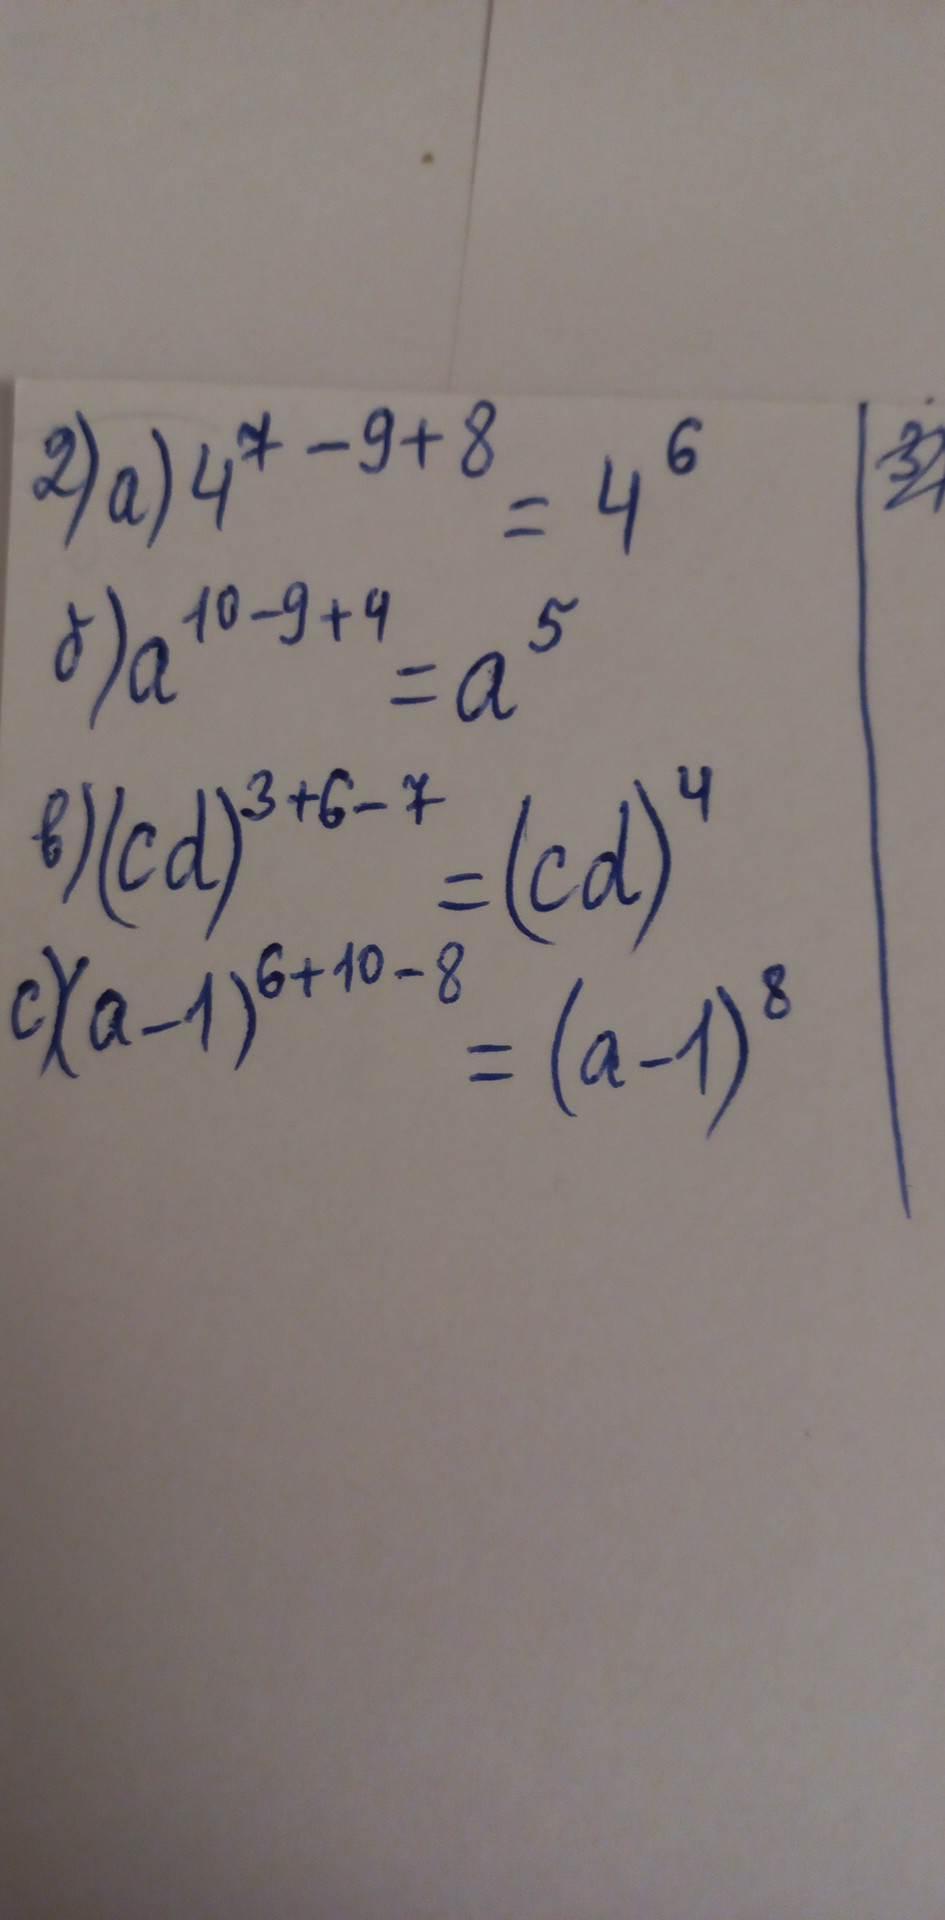 2) а) 4^{7-9+8} = 4^6
б) a^{10-9+4} = a^5
в) (cd)^{3+6-7} = (cd)^4
с) (a-1)^{6+10-8} = (a-1)^8